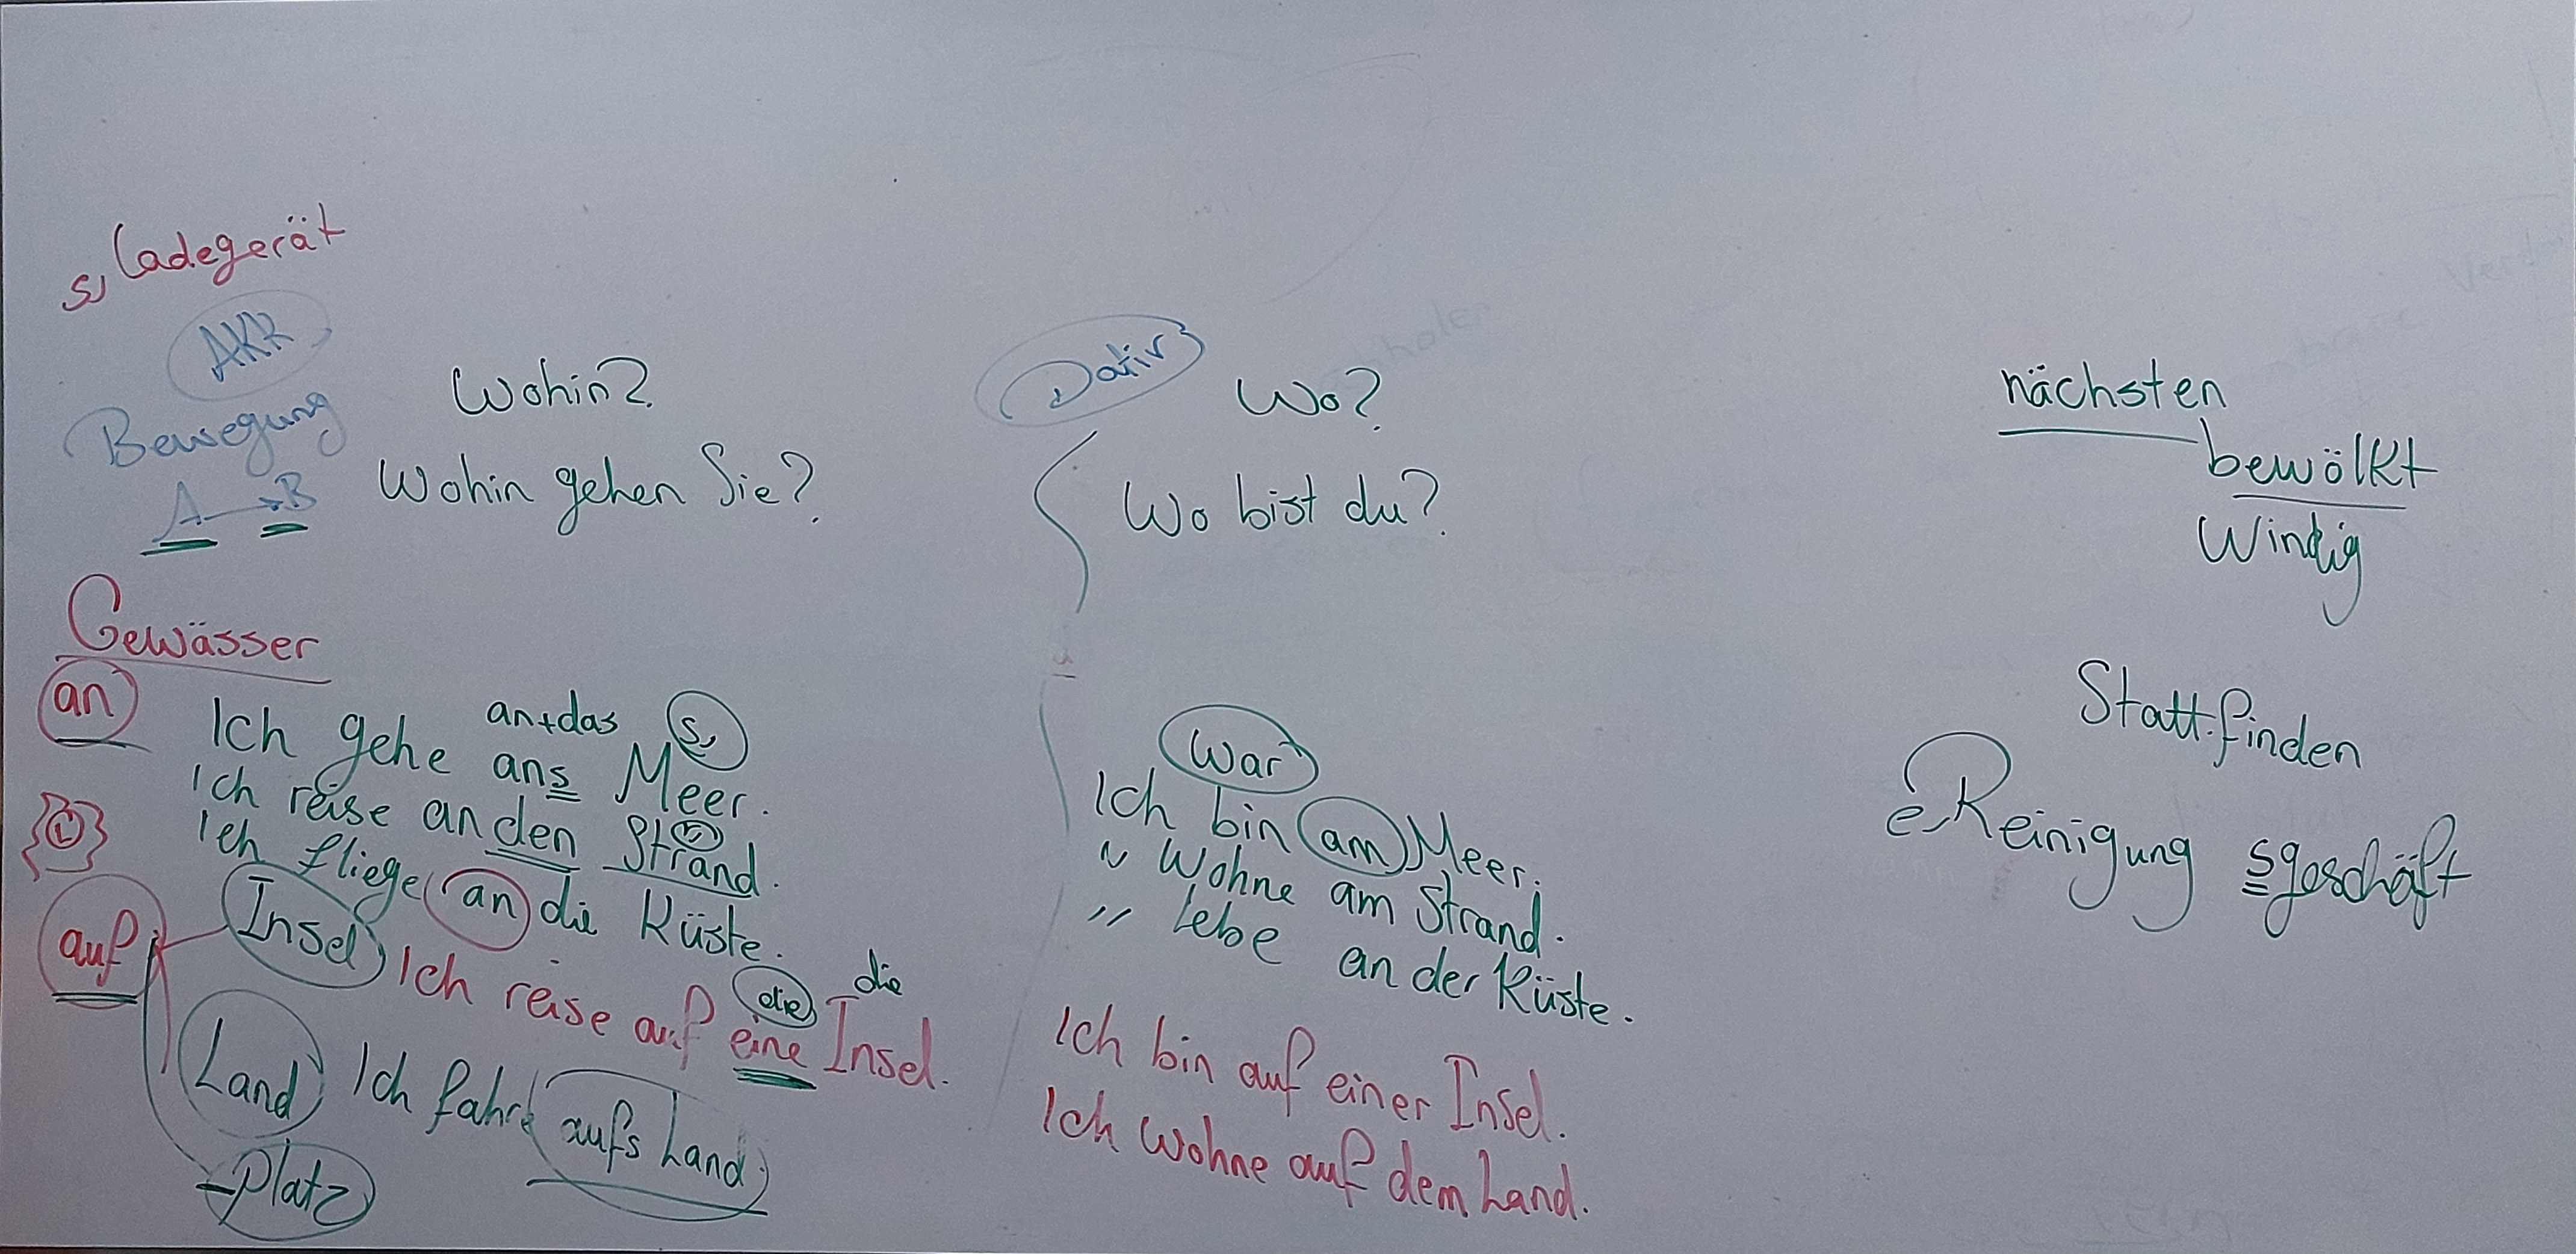 s, Ladegerät
AKK
Bewegung
A → B
Wohin?
Wohin gehen Sie?
Gewässer
an
an+das s,
Ich gehe ans Meer.
Ich reise an den Strand.
r,
Ich fliege an die Küste.
auf
Insel
die die
Ich reise auf eine Insel.
Land
Ich fahre aufs Land.
-Platz
Dativ
Wo?
Wo bist du?
war
Ich bin am Meer.
" wohne am Strand.
" lebe an der Küste.
Ich bin auf einer Insel.
Ich wohne auf dem Land.
nächsten
bewölkt
windig
Statt.finden
e, Reinigung sgeschäft